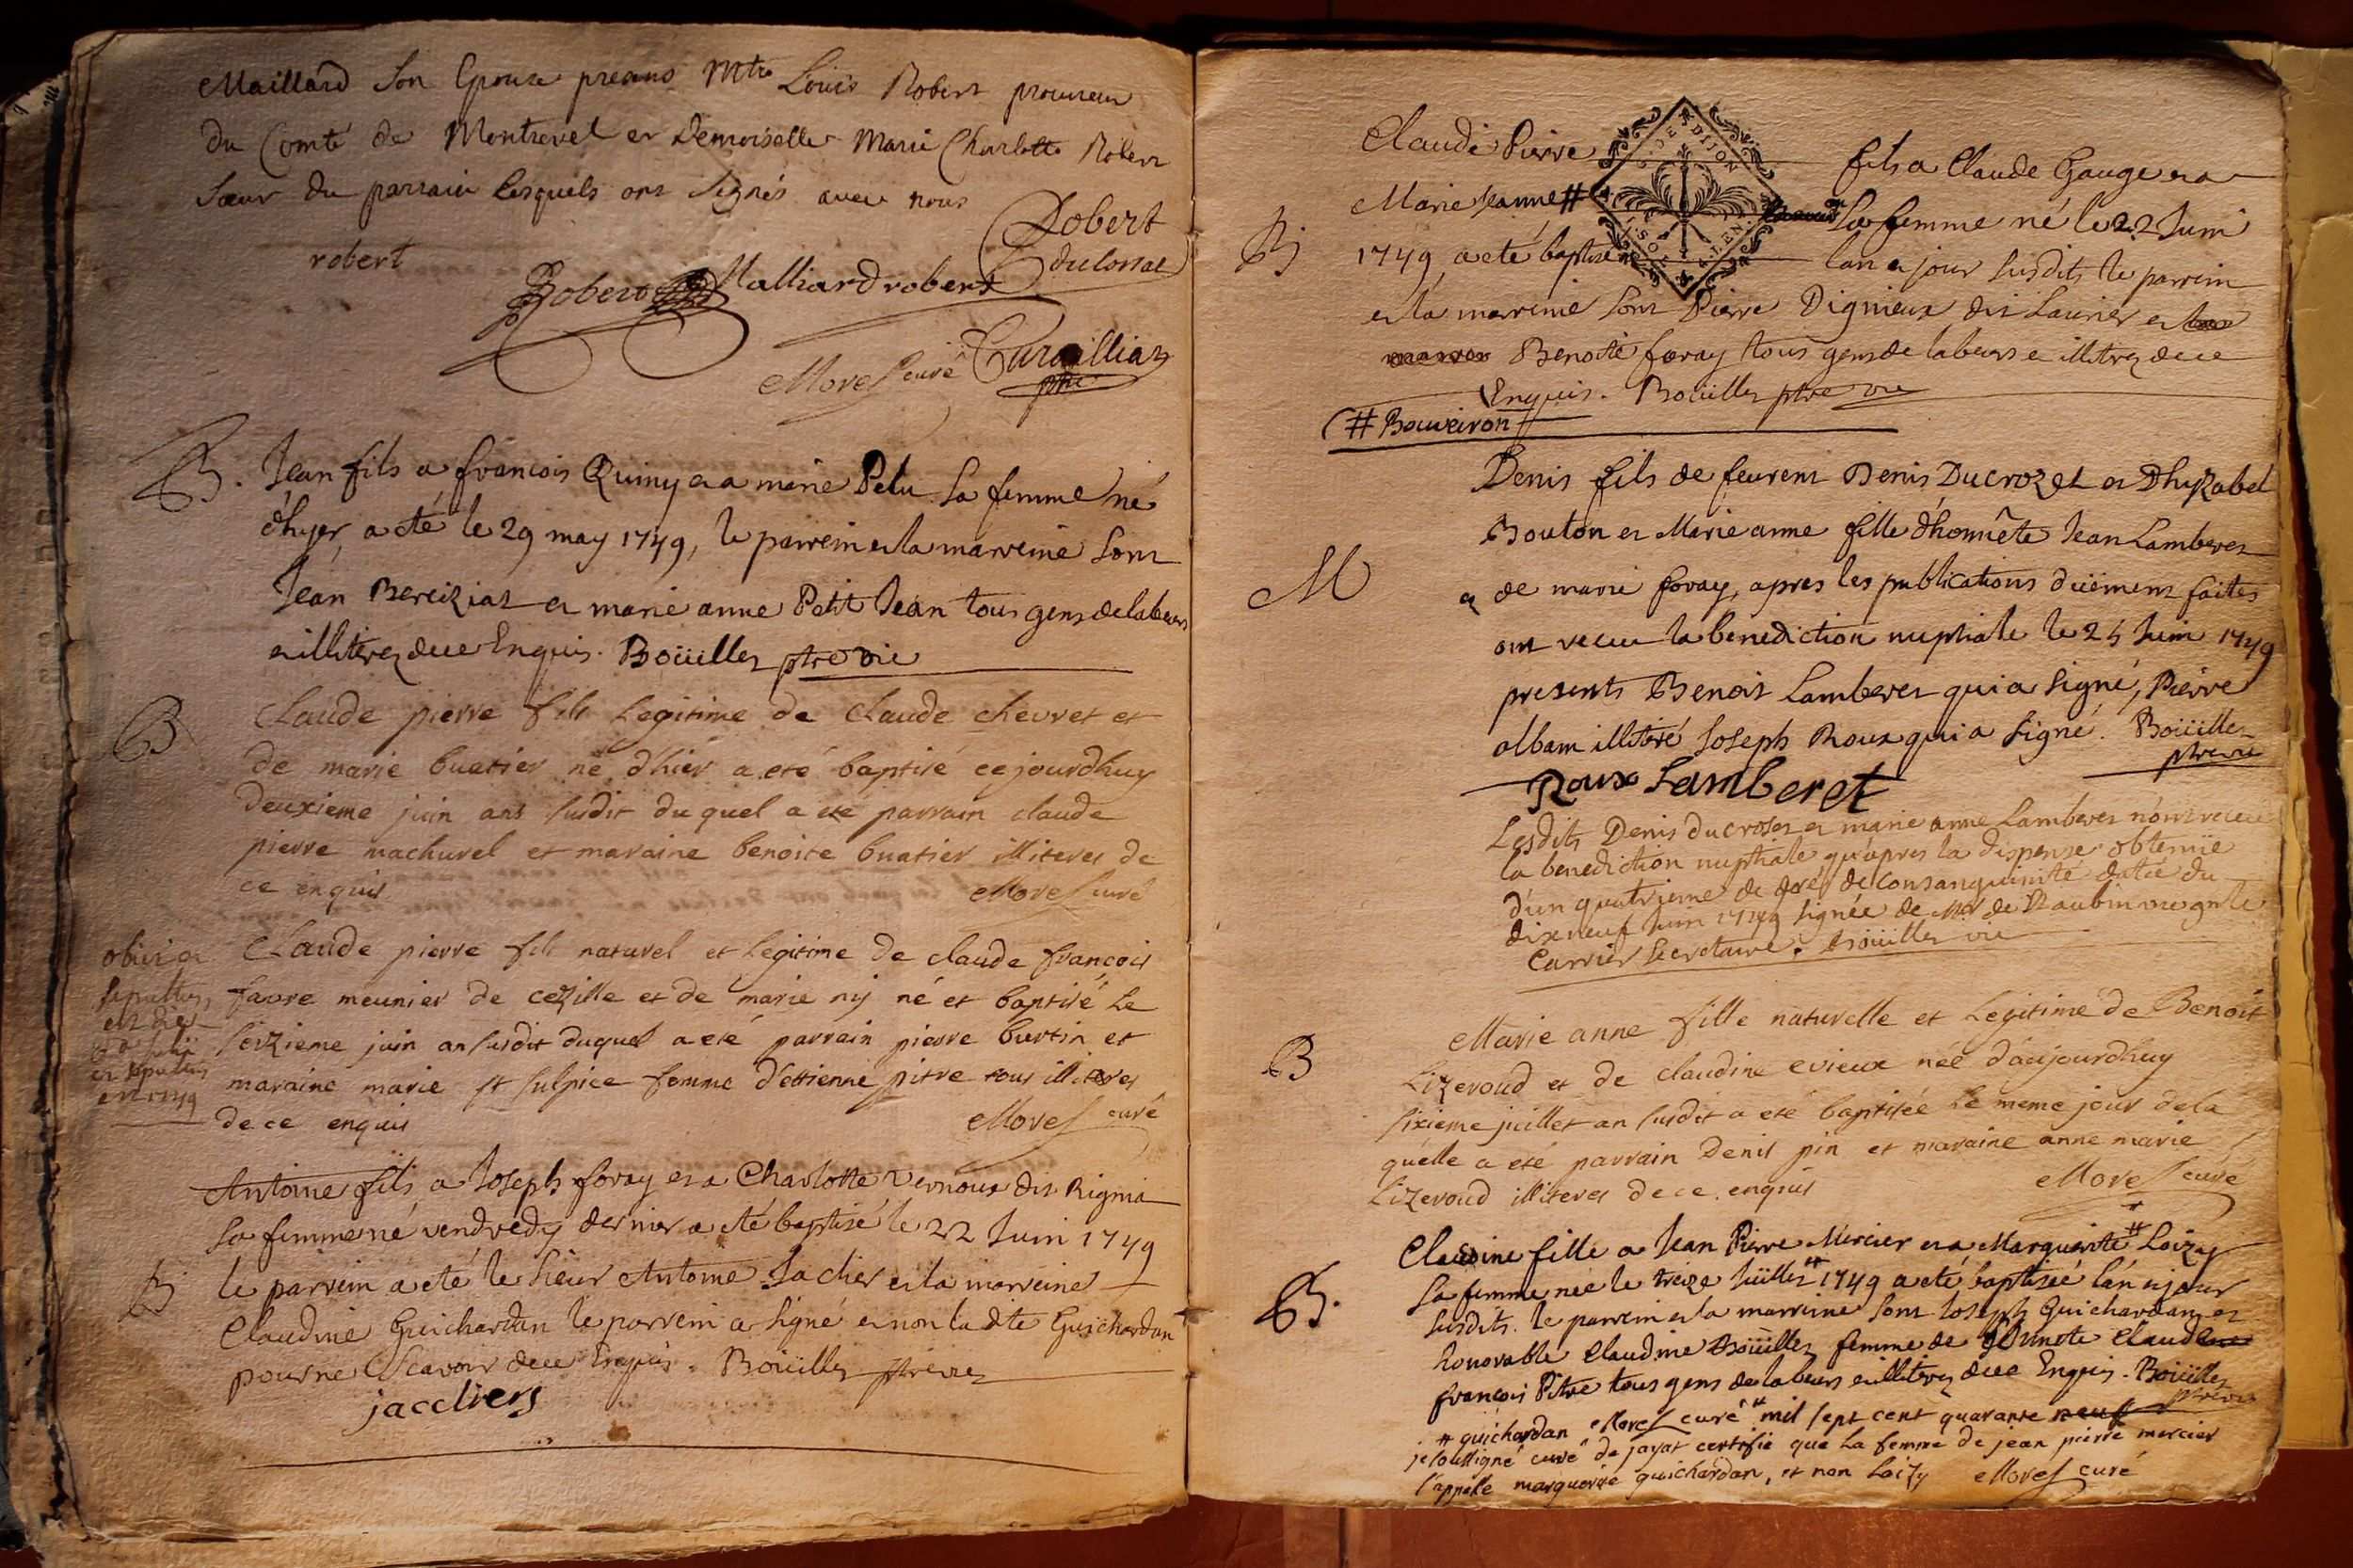 Maillard son Epouse preans Mtre Louis Robert procureur
du Comté de Montrevel et Demoiselle Marie Charlotte Robert
sœur du parrain lesquels ont signés avec nous
robert
Robert
Malliard robert
Robert
Morel curé
ptre
B. Jean fils a francois Quiny et a marie Pelu sa femme né
d'hyer, a eté le 29 may 1749, le parrein et la marreine sont
Jean Bereiziat et marie anne Petit Jean tous gens de labeurs
et illiterez de ce Enquis. Boüillet ptre vic
B Claude pierre fils legitime de claude chevret et
de marie buatier né d'hier a eté baptisé ce jourdhuy
deuxieme juin ans susdit du quel a eté parrain claude
pierre machurel et maraine benoite buatier illiteres de
ce enquis Morel curé
obiit et
sepultus
est die
et sepultus
est 1749
Claude pierre fils naturel et legitime de claude françois
favre meunier de cezille et de marie nij né et baptisé le
seizieme juin an susdit duquel a eté parrain pierre burtin et
maraine marie st sulpice femme d'estienne pitre tous illiteres
de ce enquis Morel curé
Antoine fils a Joseph foray et a Charlotte Vernoux dit Rignia
sa femme né vendredy dernier a eté baptisé le 22 Juin 1749
B le parrein a eté le sieur Antoine Jaclier et la marreine
Claudine Guichardan le parrein a signé et non la dte Guichardan
pour ne Scavoir de ce Enquis. Boüillet ptre vic
jaccliers
Claude Pierre fils a Claude Gauge et a
Marie Jeanne # sa femme né le 22 Juin
B 1749 a eté baptisé lan et jour susdits le parrein
DIJON
SOLS
et la marreine sont Pierre Dignieux dit Laurier et
Benoite foray tous gens de labeurs et illiterez de ce
Enquis. Boüillet ptre vic
(# Bouveiron
Denis fils de feu Denis Ducrozet et Dhyzabel
Bouton et Marie anne fille d'honnête Jean Lamberet
M et de marie foray, apres les publications düement faites
ont receu la benediction nuptiale le 25 Juin 1749
presents Benoit Lamberet qui a signé, Pierre
alban illitéré Joseph Roux qui a signé. Boüillet
ptre vic
Roux Lamberet
Lesdits Denis ducroset et marie anne Lamberet n'ont receu
la benediction nuptiale qu'apres la dispense obtenüe
d'un quatrieme de gré de Consanguinité datée du
dix neuf Juin 1749 signée de Mr de St aubin vic gnle
Carrier secretaire. Boüillet vic
Marie anne fille naturelle et legitime de Benoit
B Lizeroud et de claudine evieux née d'aujourdhuy
sixieme juillet an susdit a eté baptisée le meme jour de la
quelle a eté parrain Denis pin et maraine anne marie
Lizeroud illiteres de ce enquis Morel curé
Claudine fille a Jean Pierre Mercier et a Marguerite # Loizy
sa femme née le treize Jüillet 1749 a eté baptisée lan et jour
B. susdits. le parrein et la marreine sont Joseph Guichardan et
honorable Claudine Boüillet femme de Claude
francois Pitre tous gens de labeurs et illiterez de ce Enquis. Boüillet
ptre vic
# guichardan Morel curé mil sept cent quarante neuf
je soussigné curé de jayat certifie que la femme de jean pierre mercier
s'appelle marguerite guichardan, et non Loizy Morel curé